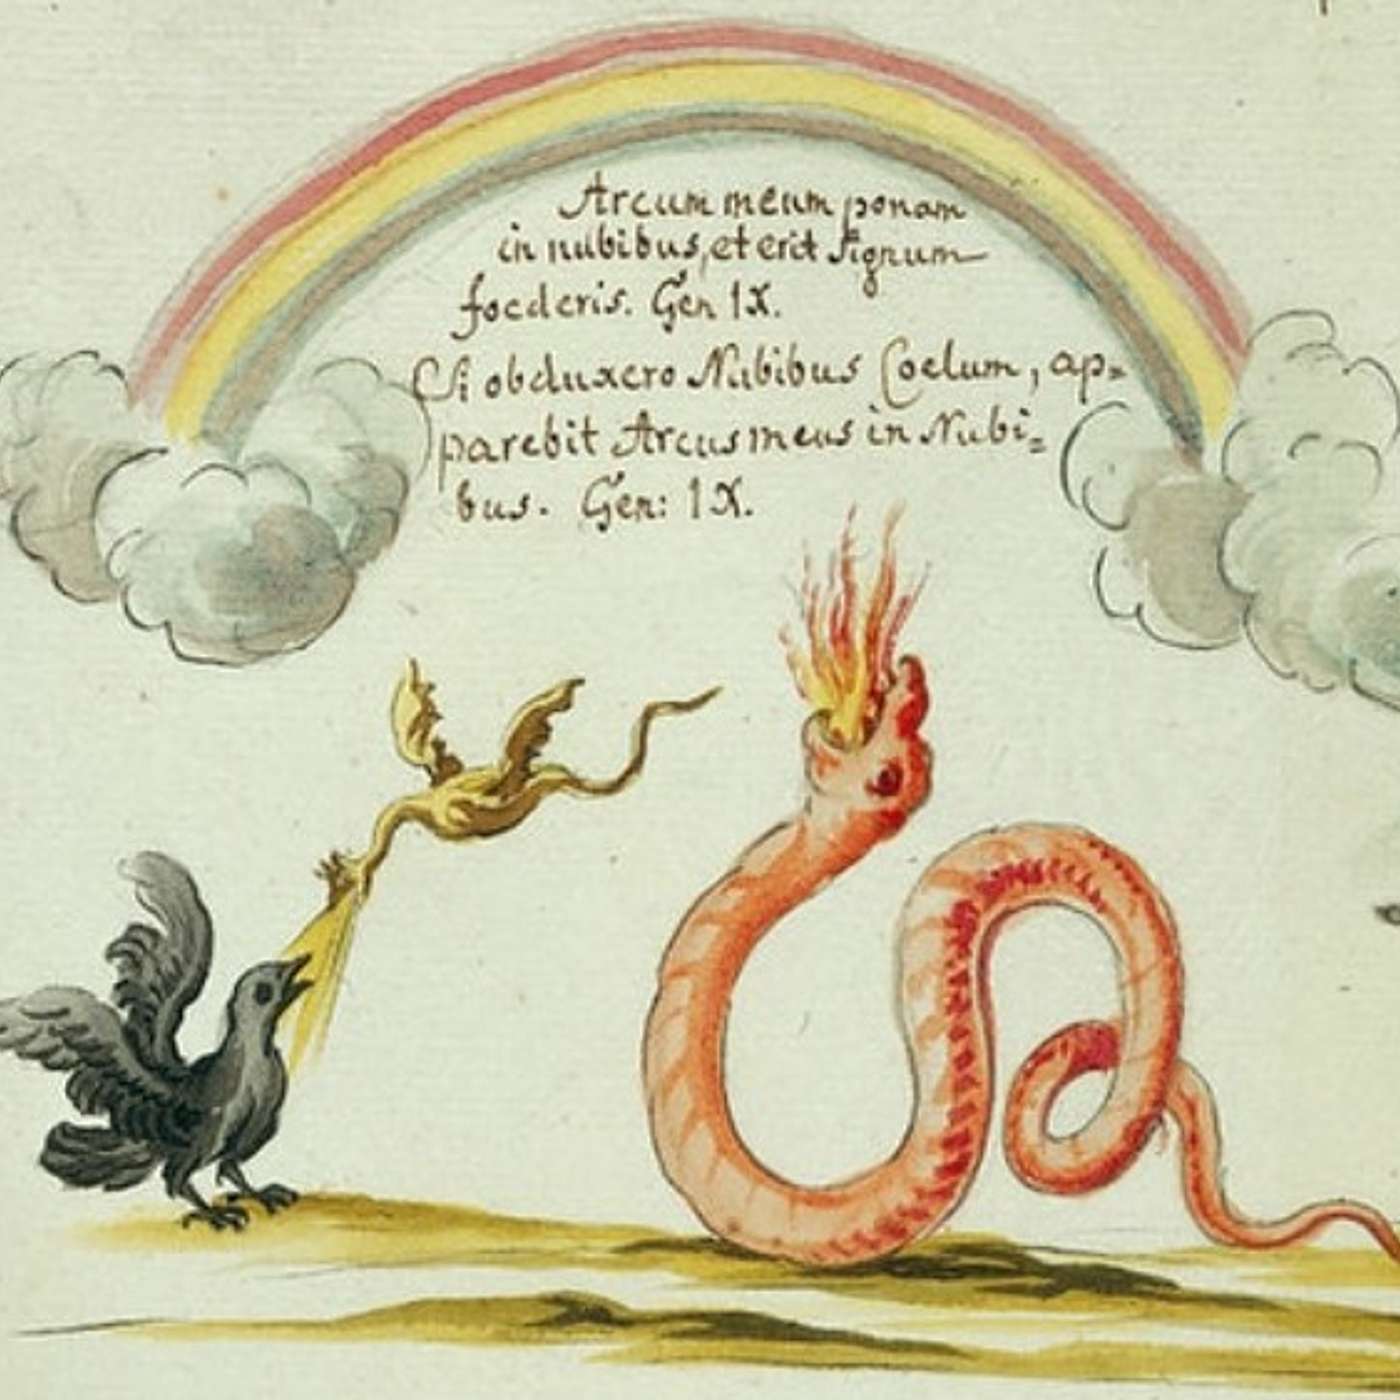 Arcum meum ponam
in nubibus, et erit signum
foederis. Gen IX.
Si obduxero Nubibus Coelum, ap=
parebit Arcus meus in Nubi=
bus. Gen: IX.